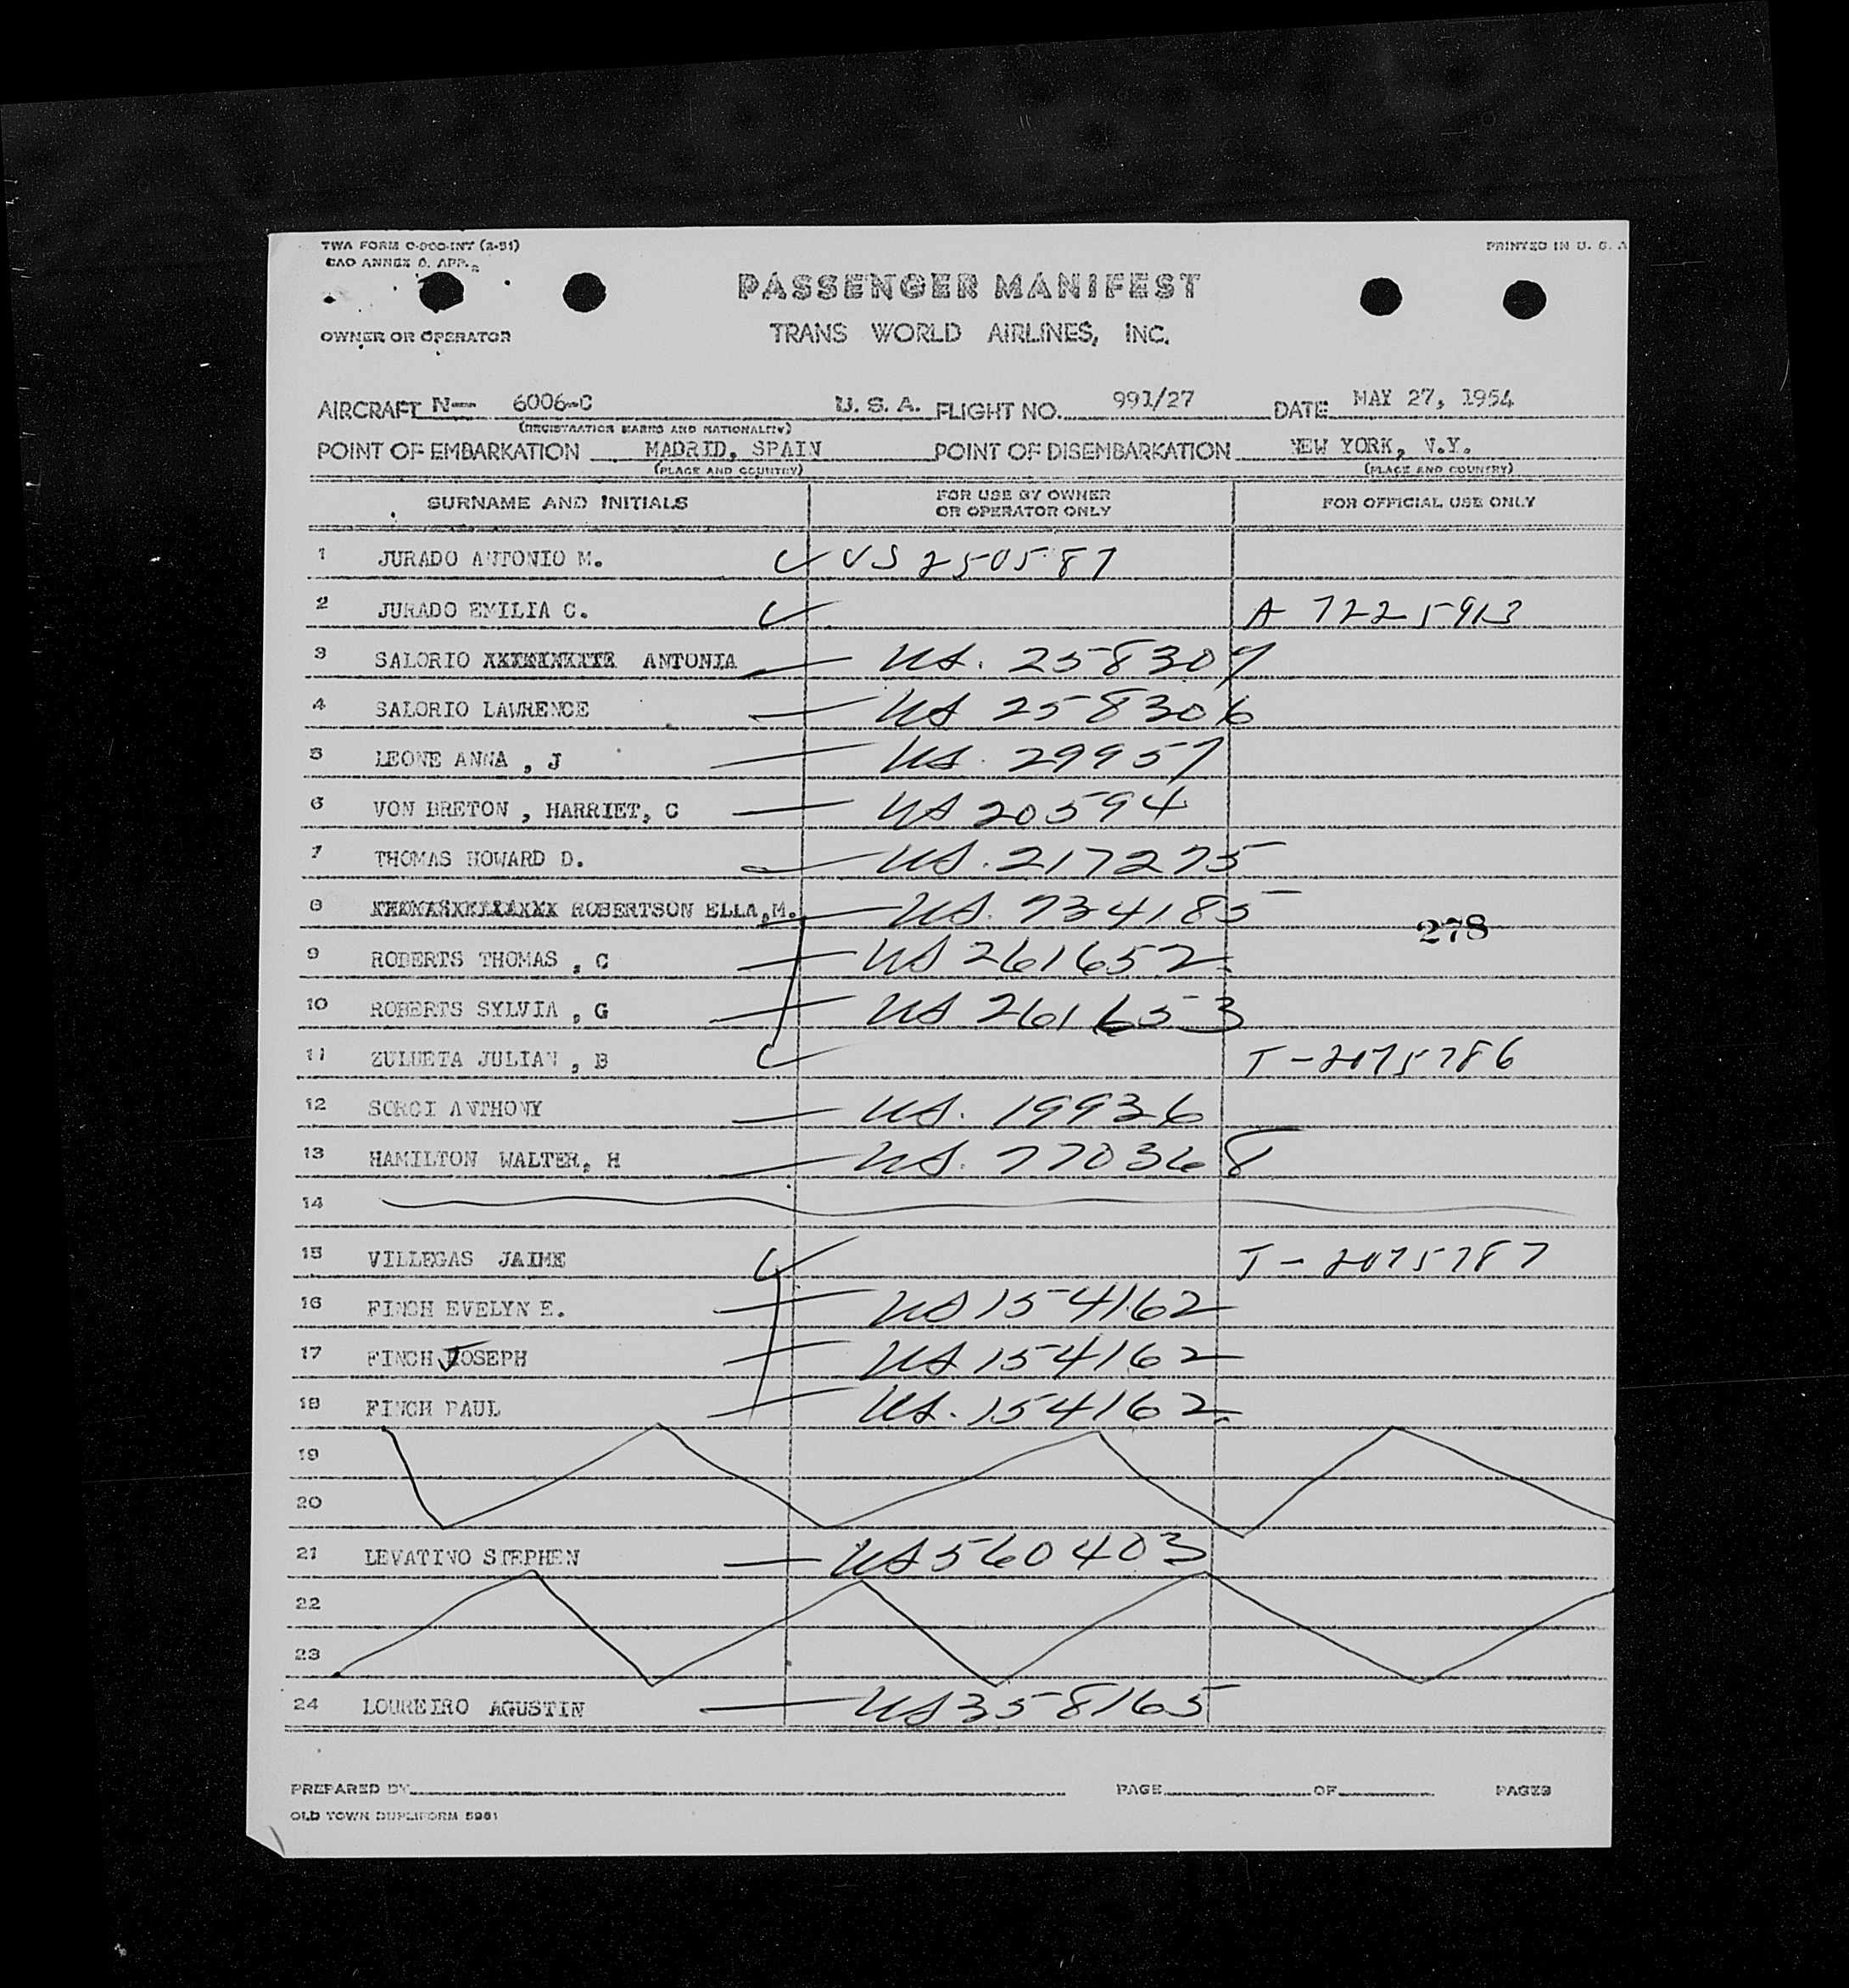 TWA FORM C-900-INT (2-51)
PRINTED IN U. S. A
PASSENGER MANIFEST
OWNER OR OPERATOR
TRANS WORLD AIRLINES, INC.
AIRCRAFT N— 6006-C U. S. A. FLIGHT NO. 991/27 DATE MAY 27, 1954
(REGISTRATION MARKS AND NATIONALITY)
POINT OF EMBARKATION MADRID, SPAIN POINT OF DISEMBARKATION NEW YORK, N.Y.
(PLACE AND COUNTRY) (PLACE AND COUNTRY)
SURNAME AND INITIALS FOR USE BY OWNER OR OPERATOR ONLY FOR OFFICIAL USE ONLY
1 JURADO ANTONIO M. US 250587
2 JURADO EMILIA C. A 7225913
3 SALORIO ANTONIA US. 258307
4 SALORIO LAWRENCE US 258306
5 LEONE ANNA , J US. 29957
6 VON BRETON , HARRIET, C US 20594
7 THOMAS HOWARD D. US. 217275
8 ROBERTSON ELLA,M. US. 734185
278
9 ROBERTS THOMAS , C US 261652
10 ROBERTS SYLVIA , G US 261653
11 ZULUETA JULIAN , B T-2075786
12 SORCI ANTHONY US. 19936
13 HAMILTON WALTER, H US. 770368
14
15 VILLEGAS JAIME T-2075787
16 FINCH EVELYN E. US 154162
17 FINCH JOSEPH US 154162
18 FINCH PAUL US. 154162
19
20
21 LEVATINO STEPHEN US 560403
22
23
24 LOUREIRO AGUSTIN US 358165
PREPARED BY PAGE OF PAGES
OLD TOWN DUPLIFORM 5981